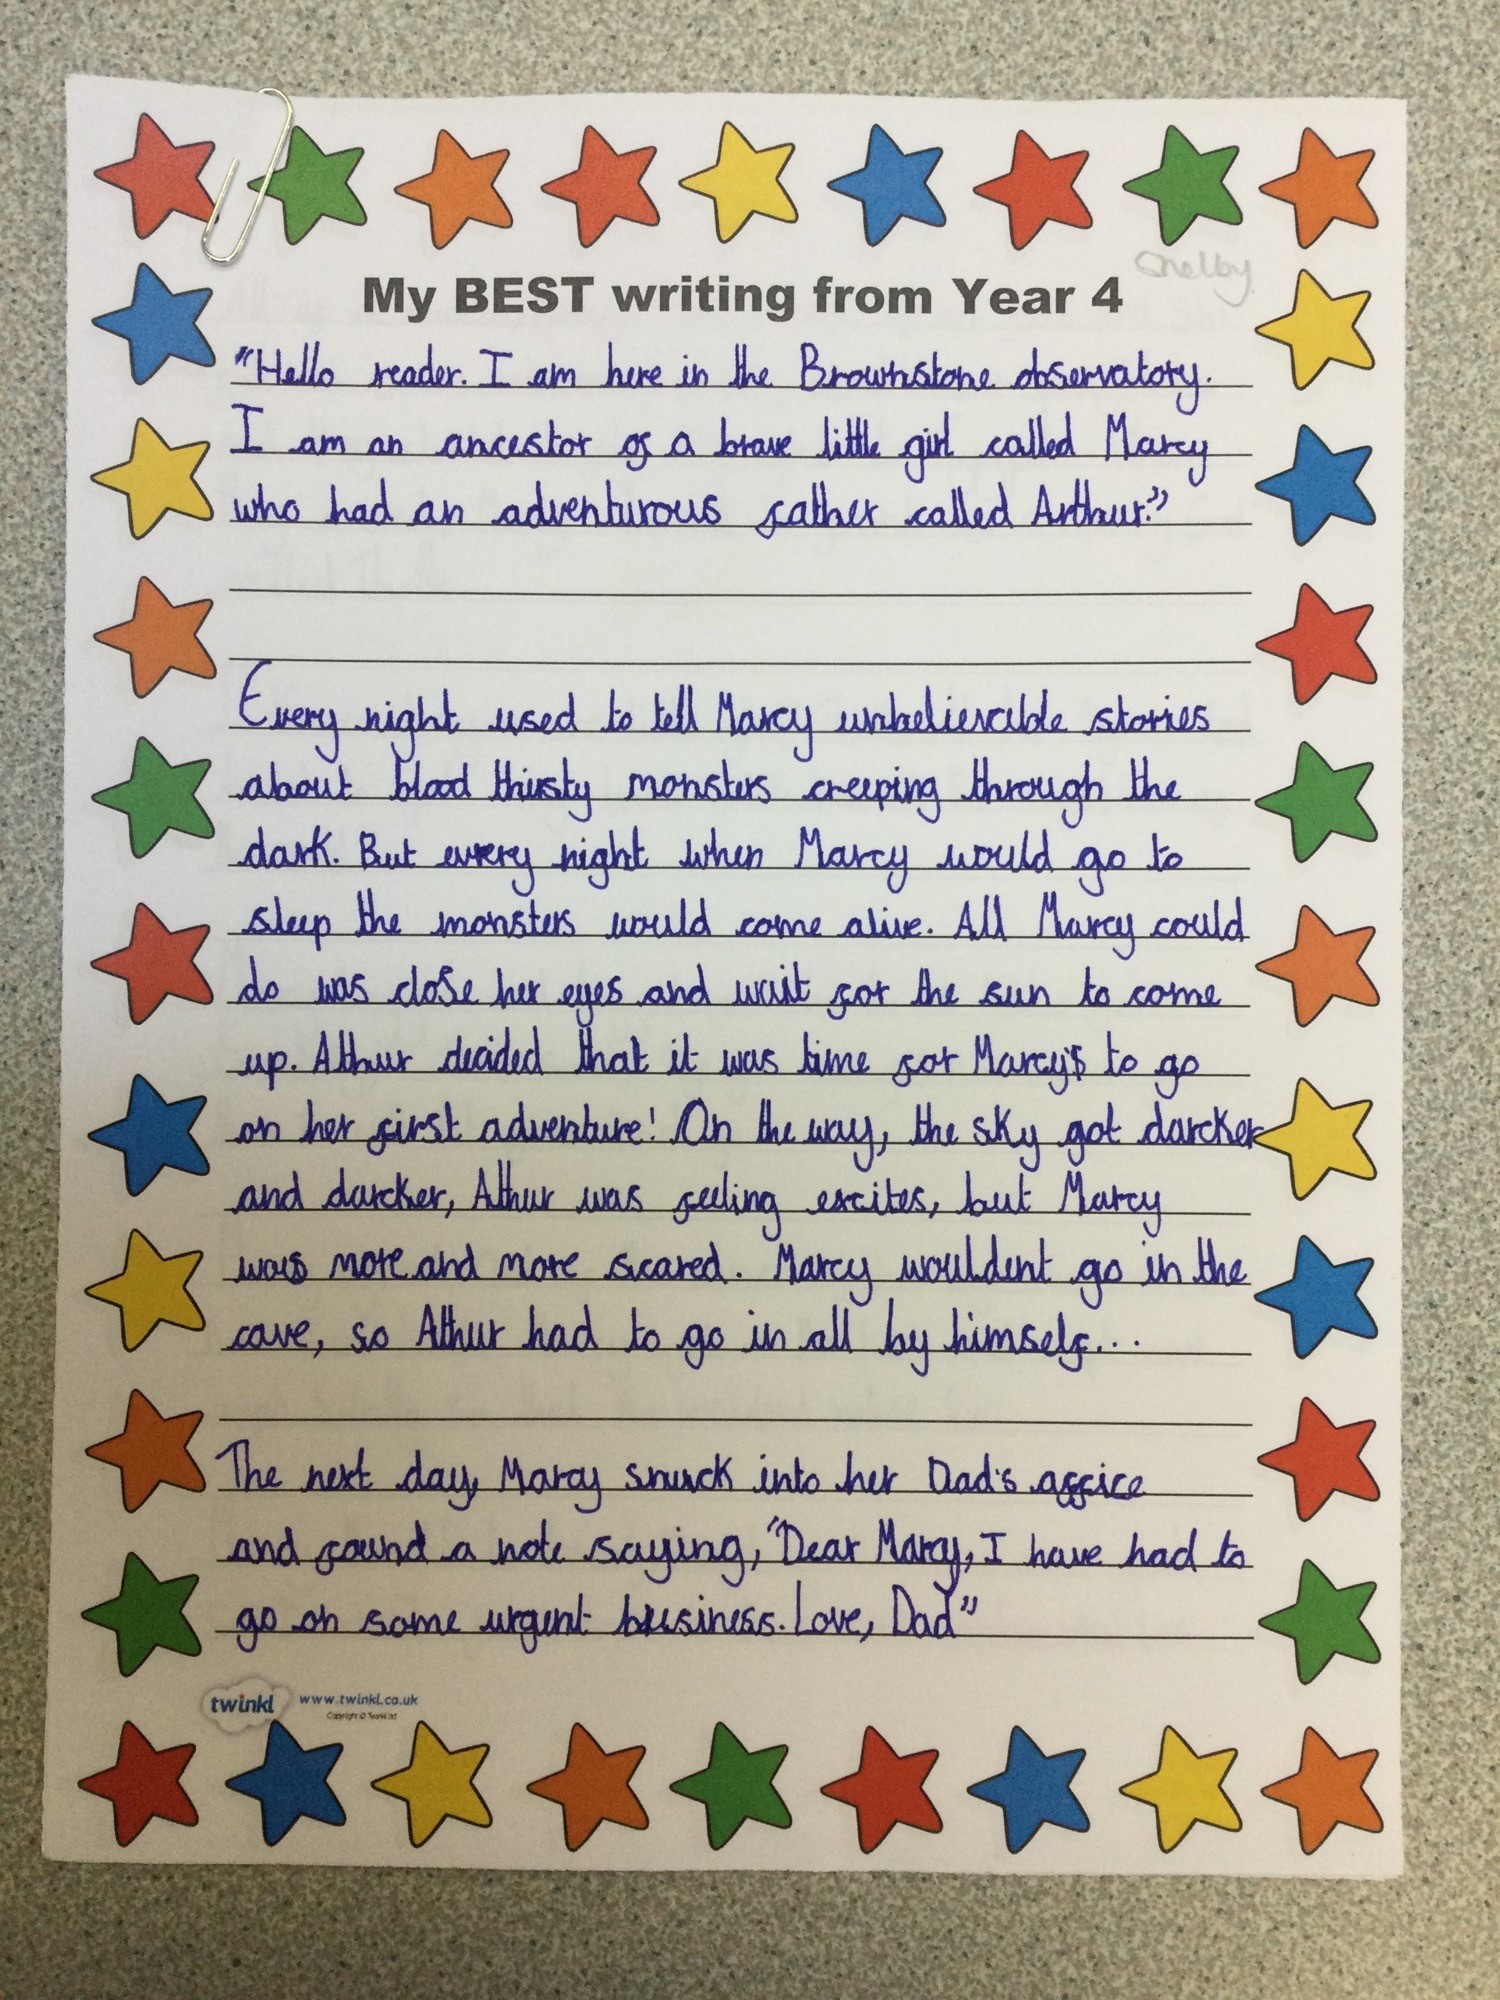 Shelby
My BEST writing from Year 4
"Hello reader. I am here in the Brownstone observatory.
I am an ancestor of a brave little girl called Marcy
who had an adventurous father called Arthur."
Every night used to tell Marcy unbelievable stories
about blood thirsty monsters creeping through the
dark. But every night when Marcy would go to
sleep the monsters would come alive. All Marcy could
do was close her eyes and wait for the sun to come
up. Athur decided that it was time for Marcy's to go
on her first adventure! On the way, the sky got darcker
and darcker, Athur was feeling excites, but Marcy
was more and more scared. Marcy wouldent go in the
cave, so Athur had to go in all by himself...
The next day, Marcy snuck into her Dad's office
and found a note saying, "Dear Marcy, I have had to
go on some urgent business. Love, Dad"
twinkl www.twinkl.co.uk